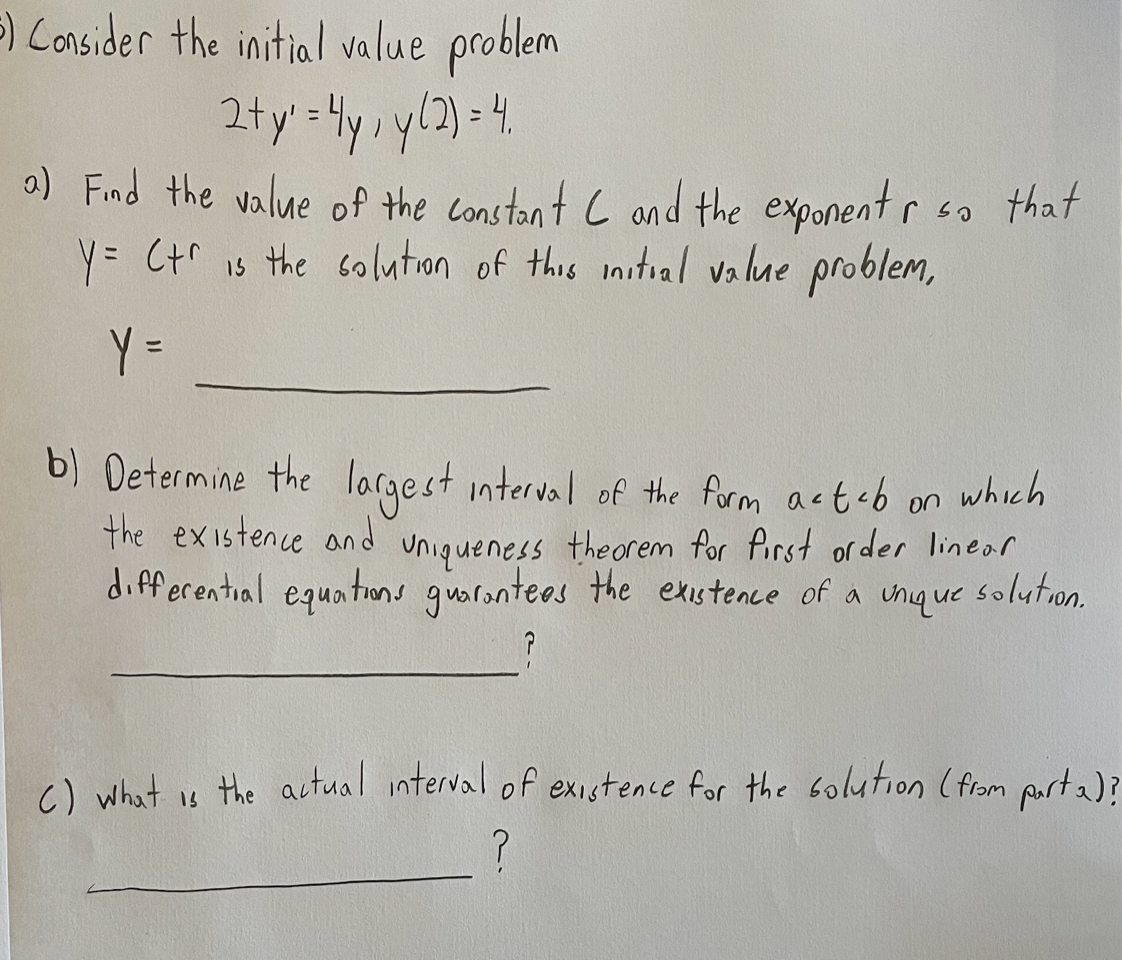 ) Consider the initial value problem
2ty' = 4y, y(2) = 4.
a) Find the value of the constant C and the exponent r so that
y = Ct^r is the solution of this initial value problem,
Y =
b) Determine the largest interval of the form a<t<b on which
the existence and uniqueness theorem for first order linear
differential equations guarantees the existence of a unique solution.
?
c) what is the actual interval of existence for the solution (from part a)?
?